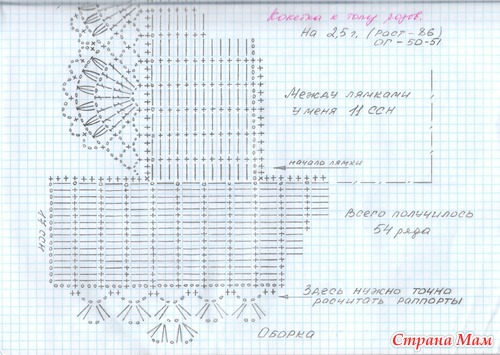 Кокетка к топу
На 2,5 г. (рост - 86)
ОГ - 50-51
Между лямками
у меня 11 ССН
начало лямки
Всего получилось
54 ряда
ССН
Здесь нужно точно
расчитать раппорты
ОБОРКА
Страна Мам